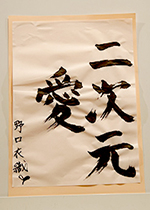 二次元
愛
野口衣織